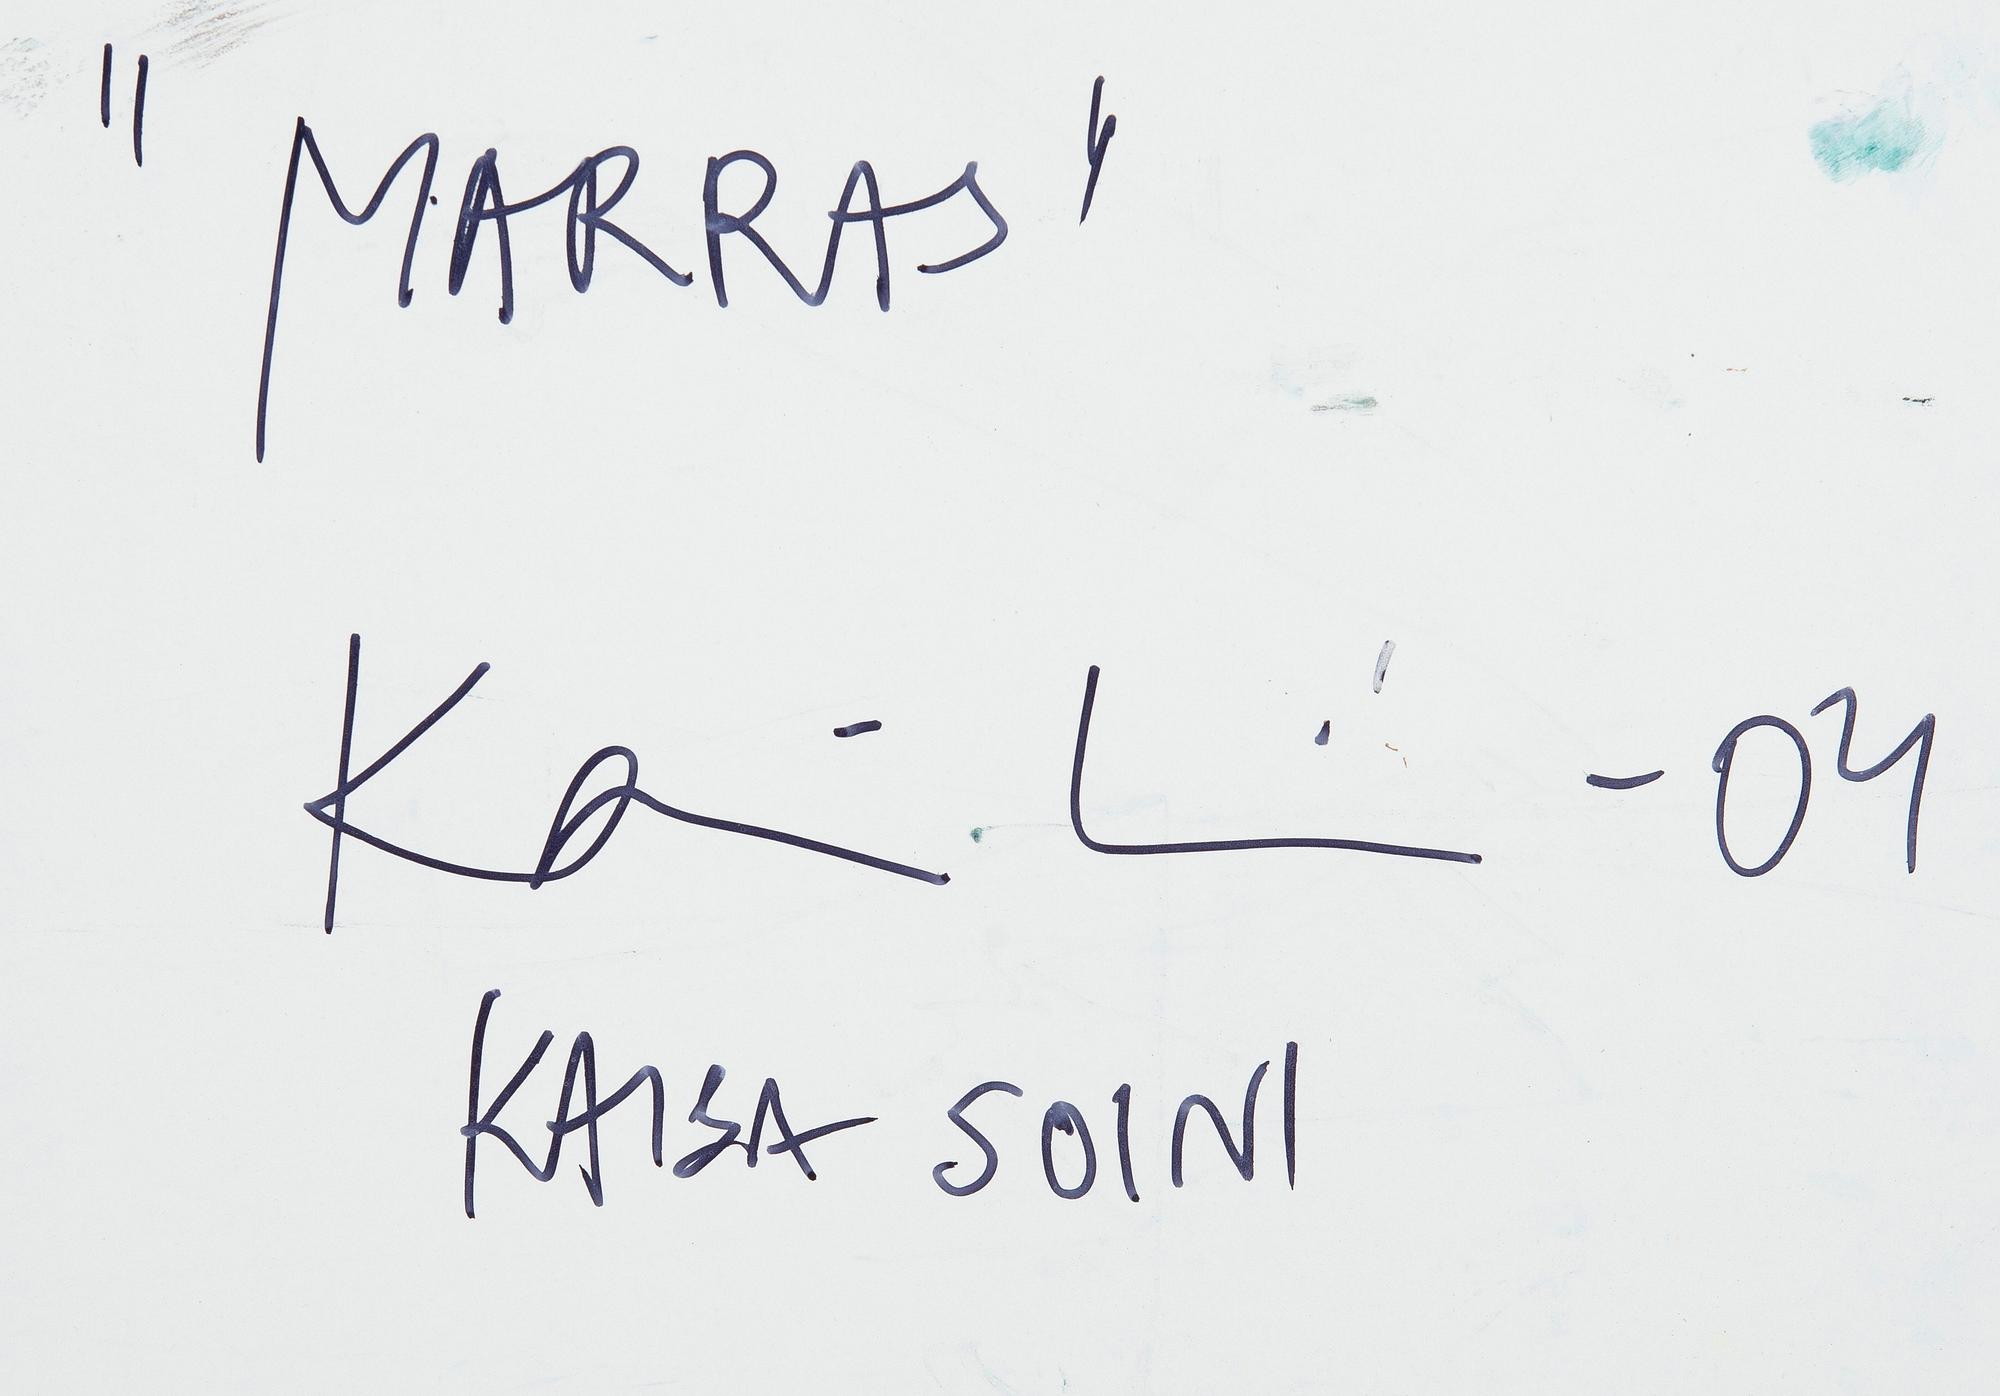 "MARRAS"
-04
KAISA SOINI